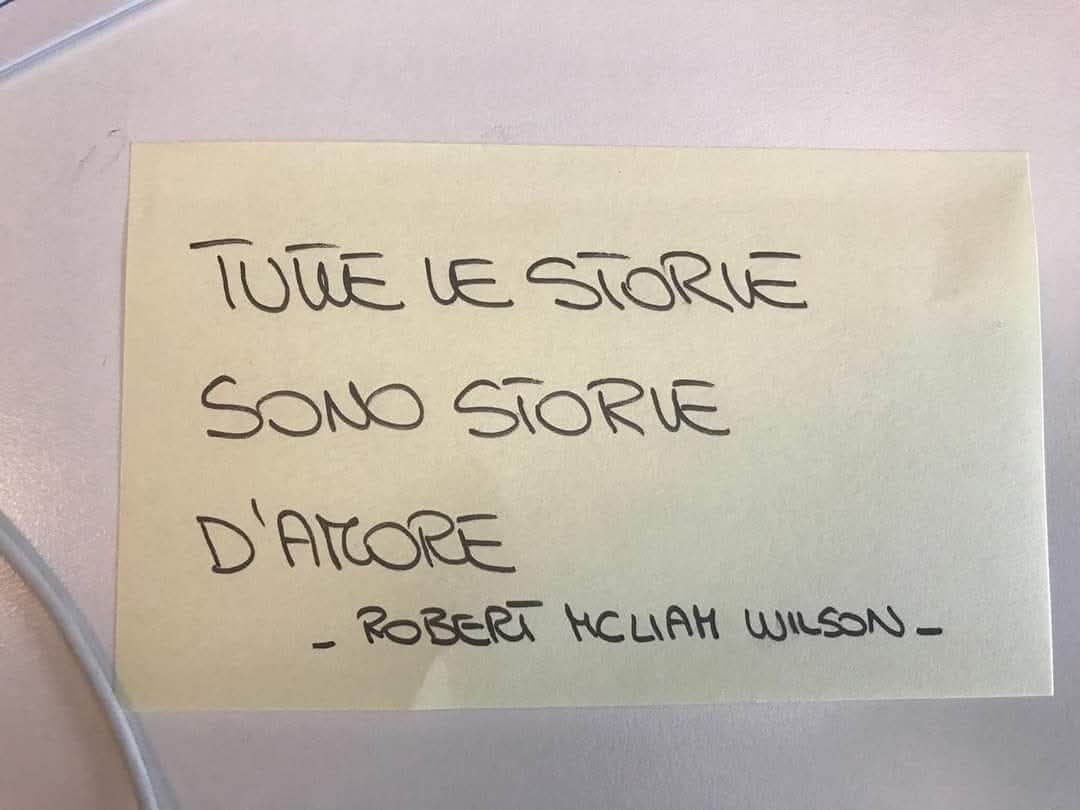 TUTTE LE STORIE
SONO STORIE
D'AMORE
- ROBERT MCLIAM WILSON -